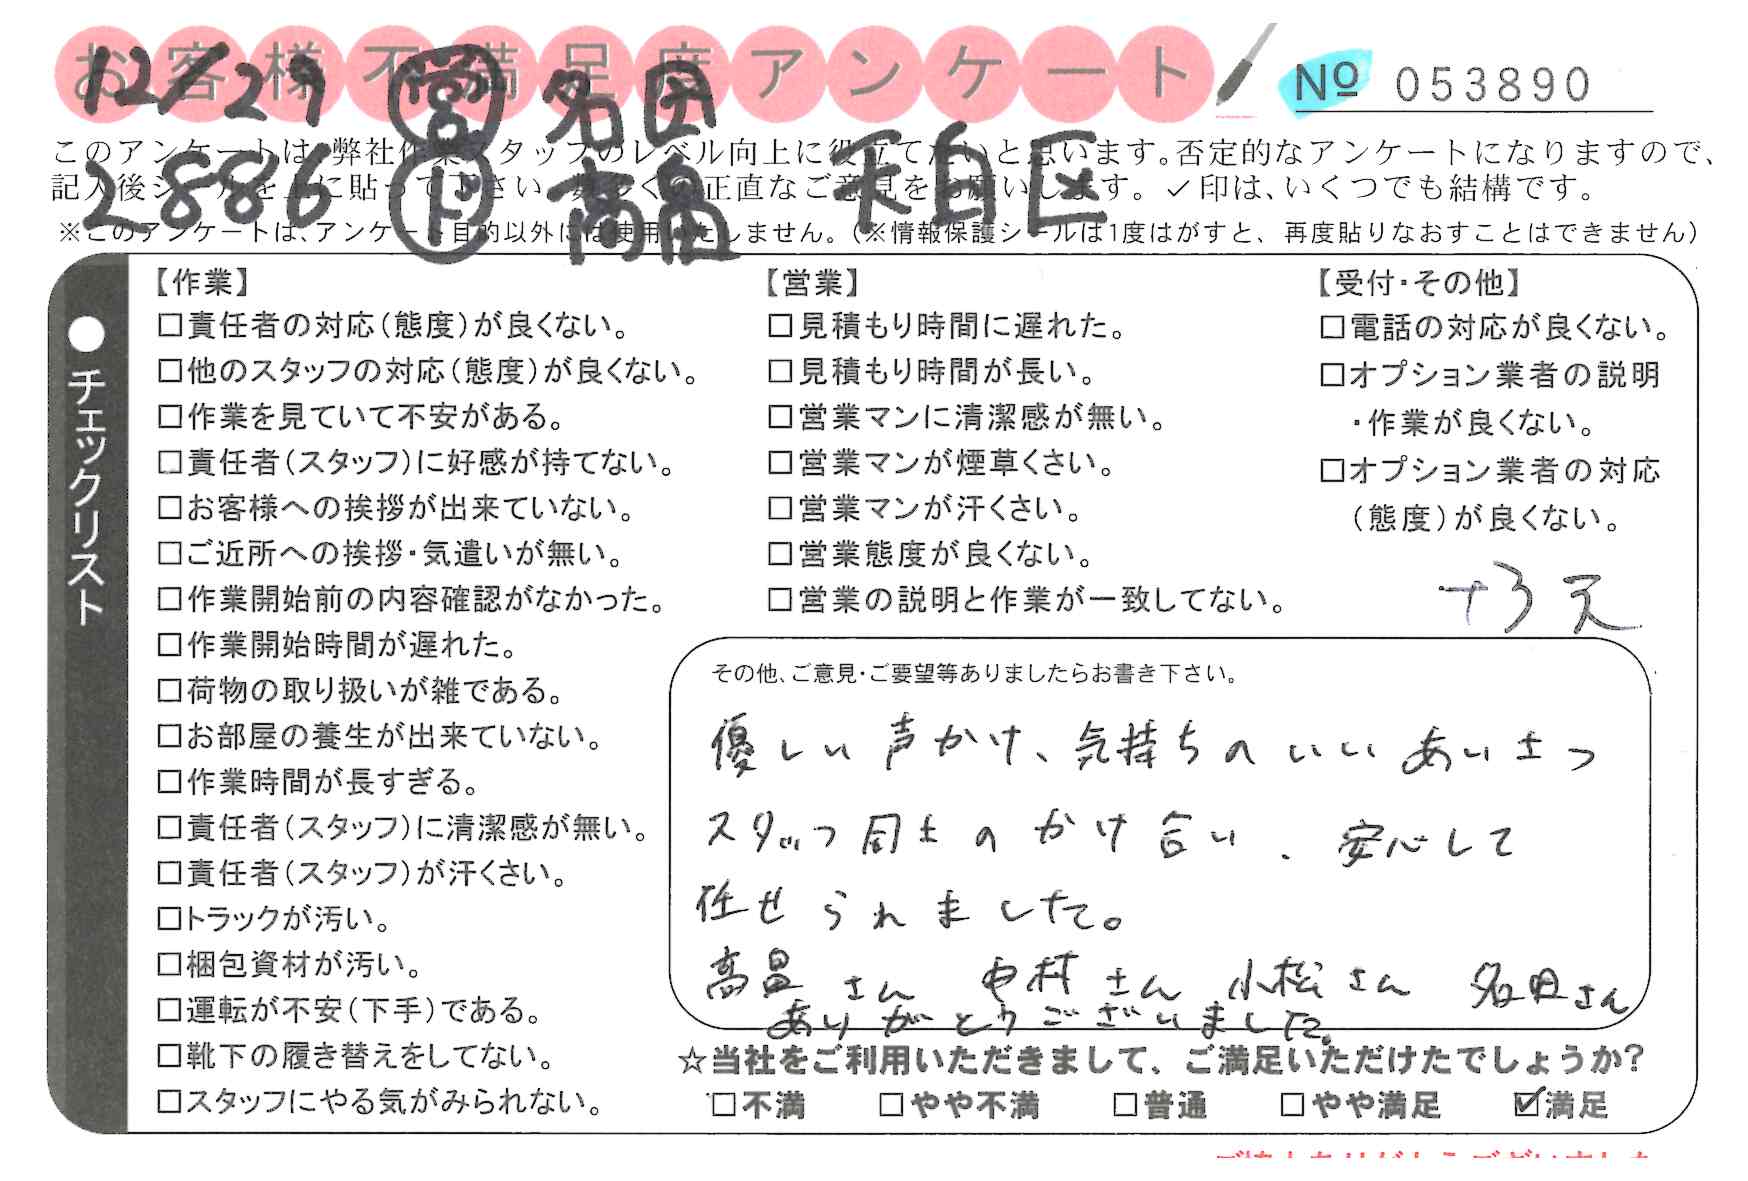 お客様不満足度アンケート
№ 053890
12/29 営 名田
2886 ト 高畠 天白区
このアンケートは、弊社作業スタッフのレベル向上に役立てたいと思います。否定的なアンケートになりますので、
記入後シールを上に貼って下さい。数多くの正直なご意見をお願いします。✓印は、いくつでも結構です。
※このアンケートは、アンケート目的以外には使用いたしません。(※情報保護シールは1度はがすと、再度貼りなおすことはできません)
●チェックリスト
【作業】
□責任者の対応(態度)が良くない。
□他のスタッフの対応(態度)が良くない。
□作業を見ていて不安がある。
□責任者(スタッフ)に好感が持てない。
□お客様への挨拶が出来ていない。
□ご近所への挨拶・気遣いが無い。
□作業開始前の内容確認がなかった。
□作業開始時間が遅れた。
□荷物の取り扱いが雑である。
□お部屋の養生が出来ていない。
□作業時間が長すぎる。
□責任者(スタッフ)に清潔感が無い。
□責任者(スタッフ)が汗くさい。
□トラックが汚い。
□梱包資材が汚い。
□運転が不安(下手)である。
□靴下の履き替えをしてない。
□スタッフにやる気がみられない。
【営業】
□見積もり時間に遅れた。
□見積もり時間が長い。
□営業マンに清潔感が無い。
□営業マンが煙草くさい。
□営業マンが汗くさい。
□営業態度が良くない。
□営業の説明と作業が一致してない。
【受付・その他】
□電話の対応が良くない。
□オプション業者の説明
・作業が良くない。
□オプション業者の対応
(態度)が良くない。
+3
その他、ご意見・ご要望等ありましたらお書き下さい。
優しい声かけ、気持ちのいいあいさつ
スタッフ同士のかけ合い、安心して
任せられました。
高畠さん 中村さん 小松さん 名田さん
ありがとうございました。
☆当社をご利用いただきまして、ご満足いただけたでしょうか?
□不満 □やや不満 □普通 □やや満足 ☑満足